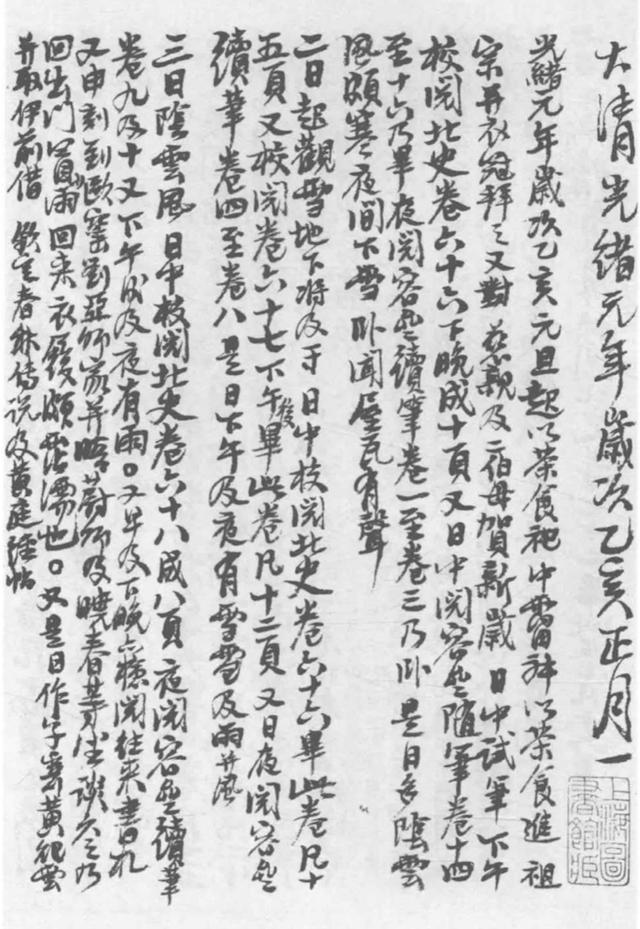 大清光緒元年歲次乙亥正月一
光緒元年歲次乙亥元旦起以茶食祀中霤神以茶食進 祖
宗并衣冠拜之又對 慈親及二伯母賀新歲 日中試筆下午
校閱北史卷六十六下晚成十頁又日中閱容齋隨筆卷十四
至十六乃畢夜閱容齋續筆卷一至卷三乃卧是日多陰雲
風頗寒夜間下雪卧聞屋瓦有聲
二日起觀雪地下將及寸 日中校閱北史卷六十六畢此卷凡十
五頁又校閱卷六十七下午後畢此卷凡十二頁 又日夜閱容齋
續筆卷四至卷八是日下午及夜有雪雪及雨并風
三日陰雲風 日中校閱北史卷六十八成八頁 夜閱容齋續筆
卷九及十 又下午風及夜有雨。又早及下晚檢閱往來書札
又申刻到歐窰劉亞師家并晤蔚師及曉春等坐談久之乃
回出門買雨回來衣履頗霑濡也。又是日作字寄黃祀雲
并取伊前借 欽定春秋傳說及黃庭經帖
上海圖書館藏